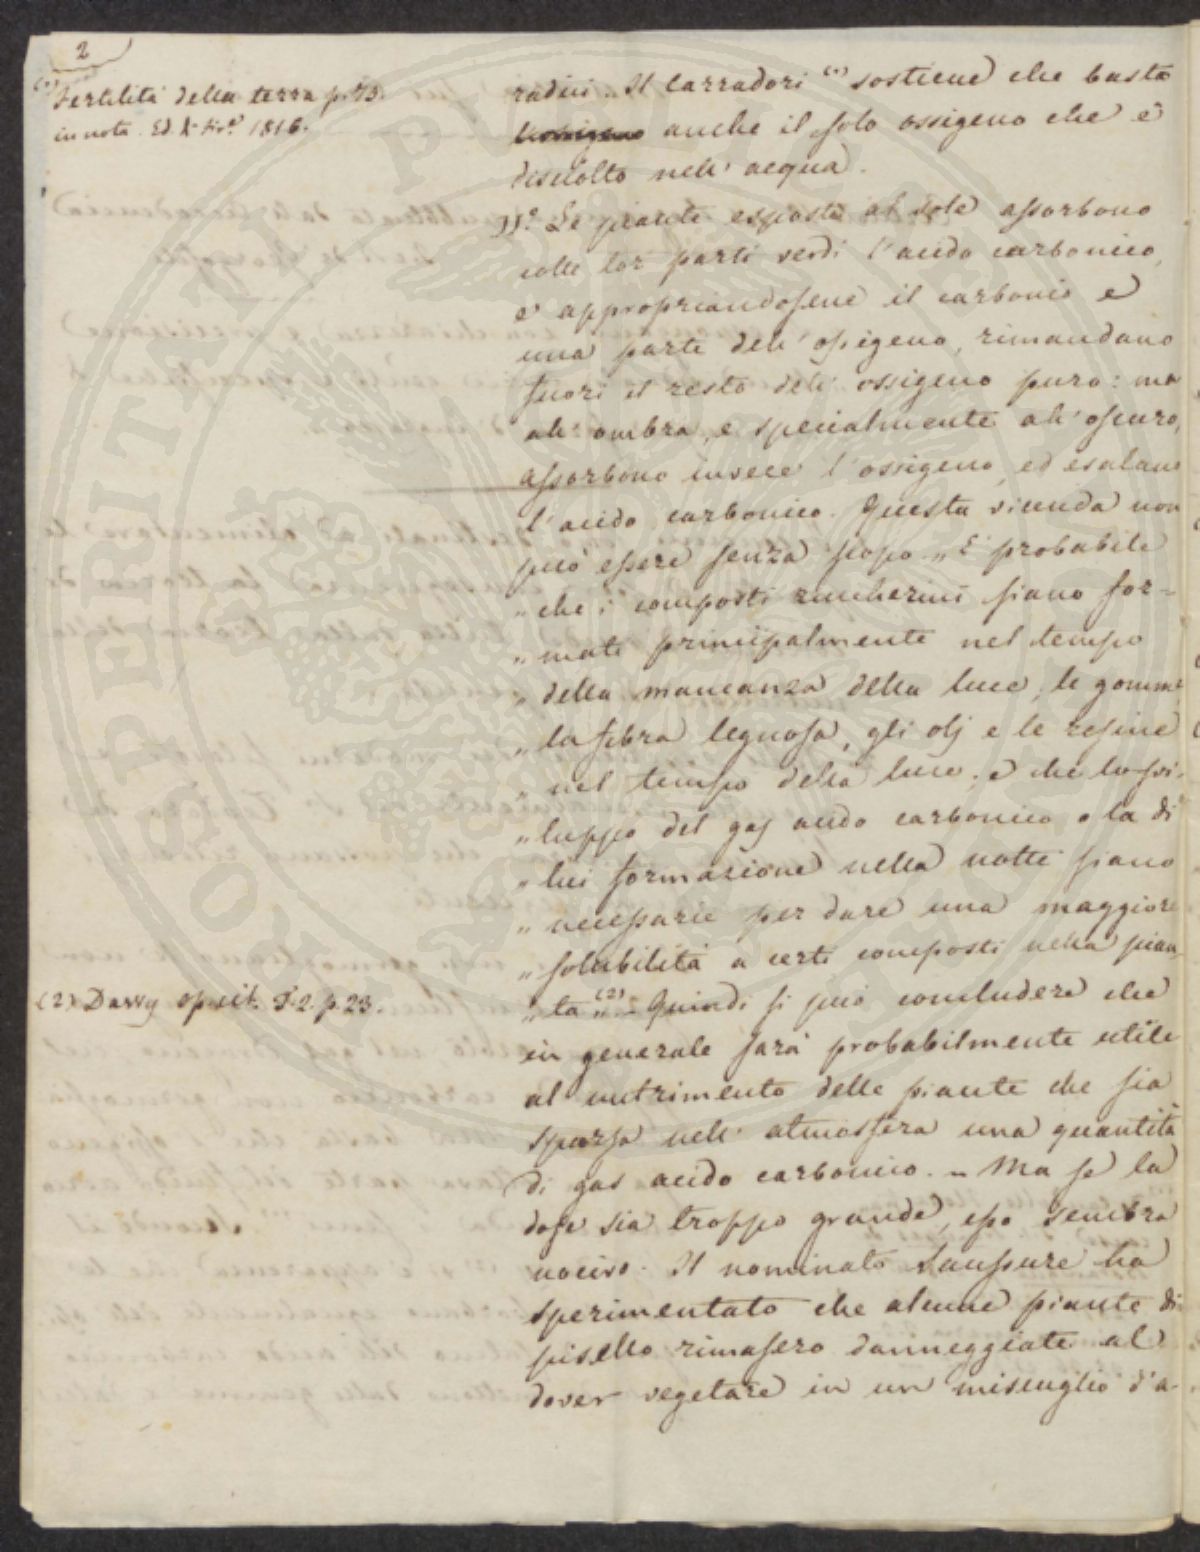 2
(1) Fertilità della terra p. 73.
in nota. Ed. di Fir.e 1816.
radici. Il Carradori (1) sostiene che basta
l'ossigeno anche il solo ossigeno che è
disciolto nell' acqua.
II.° Le piante esposte al sole assorbono
colle lor parti verdi l'acido carbonico,
e appropriandosene il carbonio e
una parte dell' ossigeno, rimandano
fuori il resto dell' ossigeno puro: ma
all' ombra, e specialmente all' oscuro,
assorbono invece l'ossigeno, ed esalano
l'acido carbonico. Questa vicenda non
può essere senza scopo „ È probabile
„ che i composti zuccherini siano for=
„ mati principalmente nel tempo
„ della mancanza della luce, le gomme
„ la fibra legnosa, gli olj e le resine
„ nel tempo della luce; e che lo svi-
„ luppo del gas acido carbonico o la di
„ lui formazione nella notte siano
„ necessarie per dare una maggiore
„ solubilità a certi composti nella pian
„ ta „ (2) Quindi si può concludere che
in generale sarà probabilmente utile
al nutrimento delle piante che sia
sparsa nell' atmosfera una quantità
di gas acido carbonico. „ Ma se la
dose sia troppo grande, esso sembra
nocivo. Il nominato Saussure ha
sperimentato che alcune piante di
pisello rimasero danneggiate al
dover vegetare in un miscuglio d'a-
(2) Davvy op. cit. T. 2. p. 23.
PROSPERITATI PUBLICAE